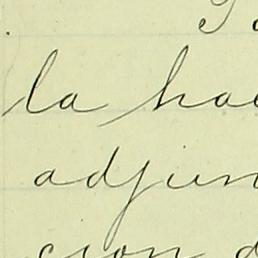 la hac
adjun
cion d